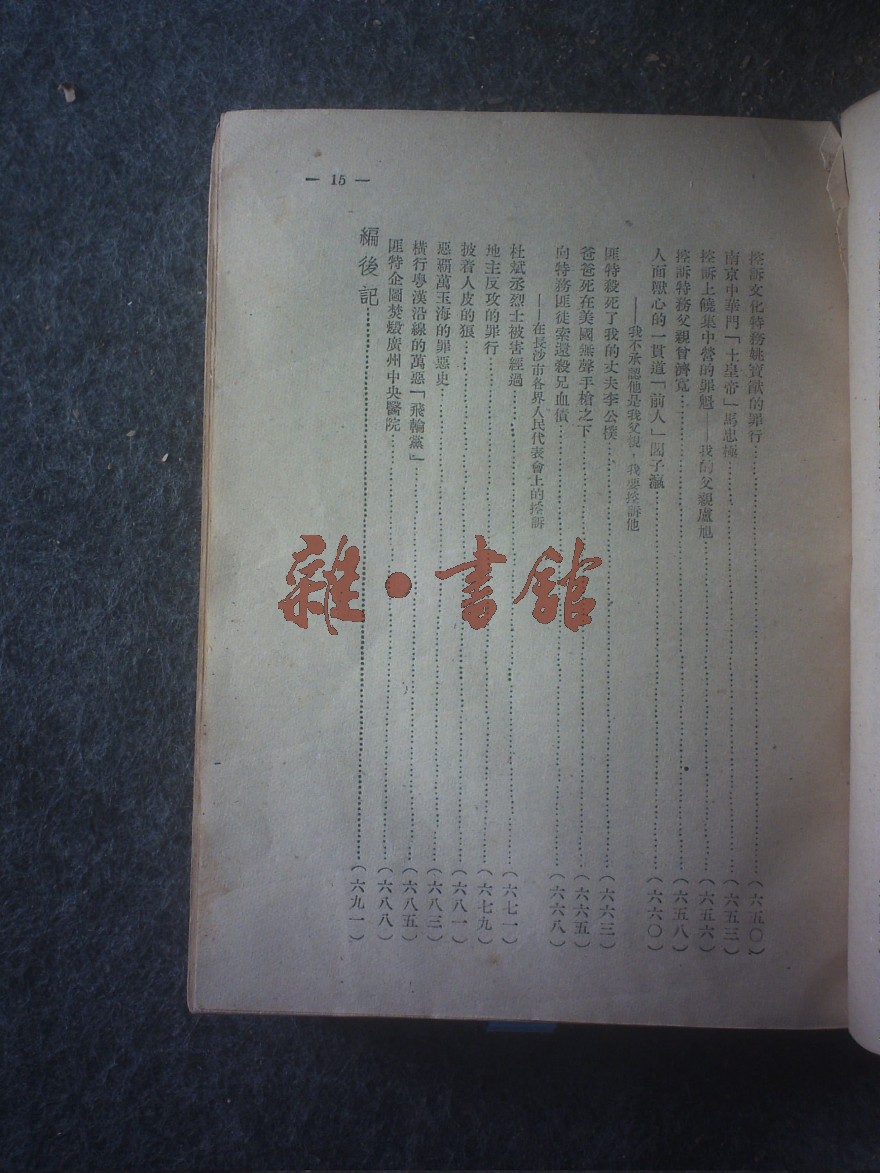 — 15 —
控訴文化特務姚寶猷的罪行……(六五〇)
南京中華門「土皇帝」馬忠極……(六五三)
控訴上饒集中營的罪魁——我的父親盧旭……(六五六)
控訴特務父親曾濟寬……(六五八)
人面獸心的一貫道「前人」閻子瀛……(六六〇)
——我不承認他是我父親，我要控訴他
匪特殺死了我的丈夫李公樸……(六六三)
爸爸死在美國無聲手槍之下……(六六五)
向特務匪徒索還殺兄血債……(六六八)
——在長沙市各界人民代表會上的控訴
杜斌丞烈士被害經過……(六七一)
地主反攻的罪行……(六七九)
披着人皮的狼……(六八一)
惡霸萬玉海的罪惡史……(六八三)
橫行粵漢沿線的萬惡「飛輪黨」……(六八五)
匪特企圖焚燬廣州中央醫院……(六八八)
編後記……(六九一)
雜·書館